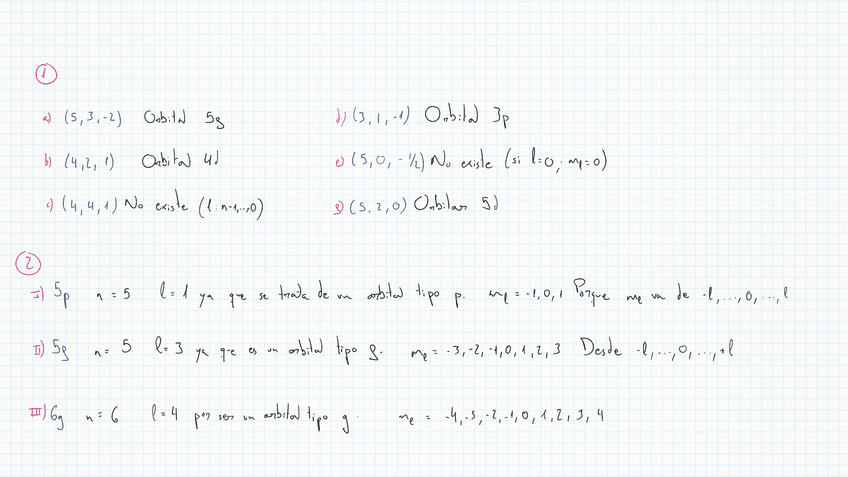 1
a) (5, 3, -2) Orbital 5f
d) (3, 1, -1) Orbital 3p
b) (4, 2, 1) Orbital 4d
e) (5, 0, -1/2) No existe (si l=0; ml=0)
c) (4, 4, 1) No existe (l: n-1,...,0)
f) (5, 2, 0) Orbital 5d
2
I) 5p n = 5 l = 1 ya que se trata de un orbital tipo p. ml = -1, 0, 1 Porque ml va de -l, ..., 0, ..., l
II) 5f n = 5 l = 3 ya que es un orbital tipo f. ml = -3, -2, -1, 0, 1, 2, 3 Desde -l, ..., 0, ..., +l
III) 6g n = 6 l = 4 por ser un orbital tipo g. ml = -4, -3, -2, -1, 0, 1, 2, 3, 4